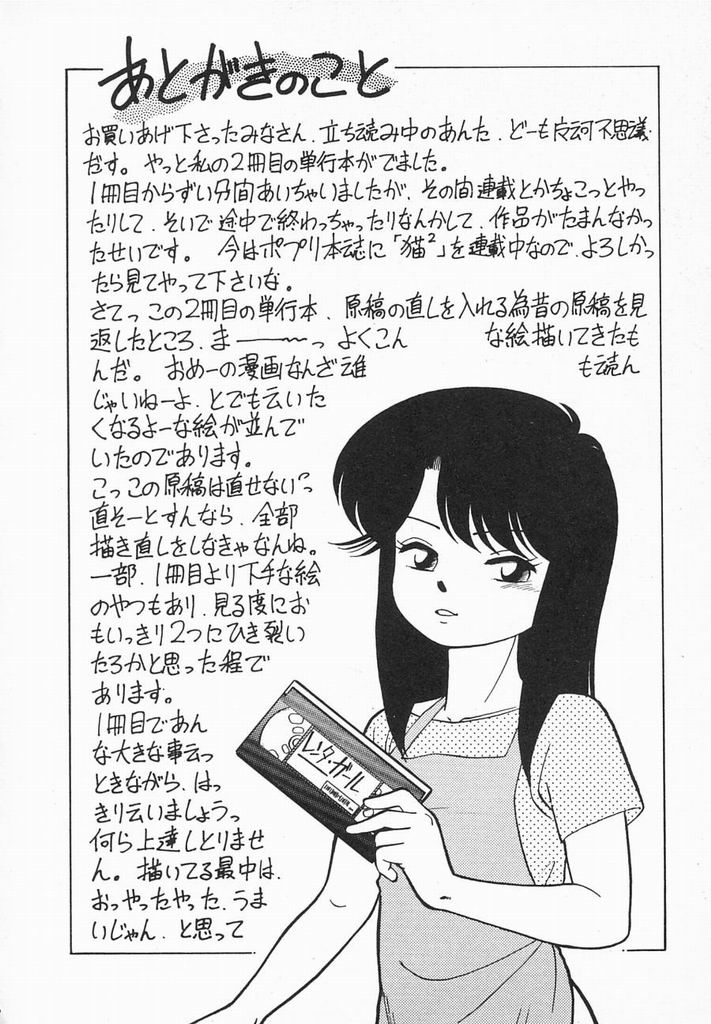 あとがきのこと
お買いあげ下さったみなさん、立ち読み中のあんた、どーも友河不思議
だす。やっと私の2冊目の単行本がでました。
1冊目からずい分間あいちゃいましたが、その間連載とかちょこっとやっ
たりして、そいで途中で終わっちゃったりなんかして、作品がたまんなかっ
たせいです。今はポプリ本誌に「猫²」を連載中なので、よろしかっ
たら見てやって下さいな。
さてっこの2冊目の単行本、原稿の直しを入れる為昔の原稿を見
返したところ、まーーーっ よくこん な絵描いてきたも
んだ。おめーの漫画なんざ誰 も読ん
じゃいねーよ、とでも云いた
くなるよーな絵が並んで
いたのであります。
こっこの原稿は直せないっ
直そーとすんなら、全部
描き直しをしなきゃなんね。
一部、1冊目より下手な絵
のやつもあり、見る度にお
もいっきり2つにひき裂い
たろかと思った程で
あります。
1冊目であん
な大きな事云っ
ときながら、はっ
きり云いましょうっ
何ら上達しとりませ
ん。描いてる最中は、
おっやったやった、うま
いじゃん、と思って
レンタ・ガール